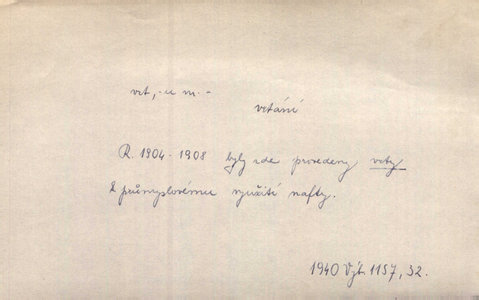 vrt, -u m. -
vrtání
R. 1904 - 1908 byly zde provedeny vrty
k průmyslovému využití nafty.
1940 Výt. 1157, 32.